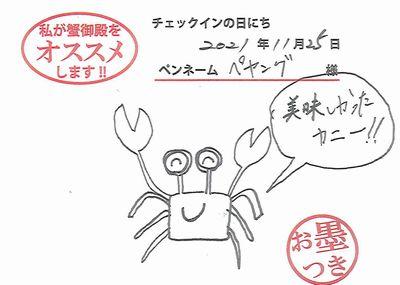 私が蟹御殿を
オススメ
します!!
チェックインの日にち
2021年11月25日
ペンネーム ペヤング 様
美味しかった
カニー!!
お墨
つき